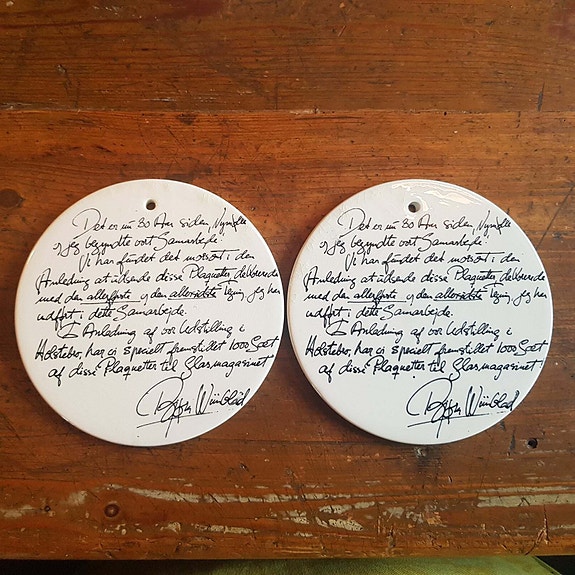 Det er nu 30 Aar siden, Nymølle
og jeg begyndte vort Samarbejde.
Vi har fundet det morsomt i den
Anledning at udsende disse Plaquetter dekorerede
med den allerførste og den allersidste Tegning, jeg har
udført i dette Samarbejde.
I Anledning af vor Udstilling i
Holstebro, har vi specielt fremstillet 1000 Sæt
af disse Plaquetter til Glasmagasinet!
Bjørn Wiinblad
Det er nu 30 Aar siden, Nymølle
og jeg begyndte vort Samarbejde.
Vi har fundet det morsomt i den
Anledning at udsende disse Plaquetter dekorerede
med den allerførste og den allersidste Tegning, jeg har
udført i dette Samarbejde.
I Anledning af vor Udstilling i
Holstebro, har vi specielt fremstillet 1000 Sæt
af disse Plaquetter til Glasmagasinet!
Bjørn Wiinblad